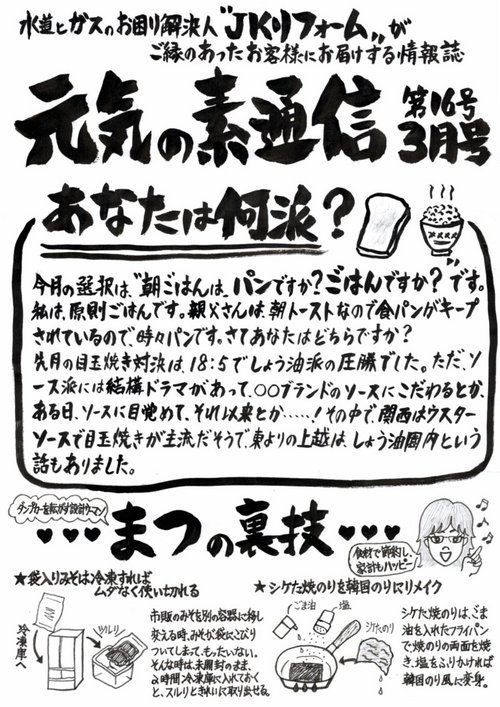 水道とガスのお困り解決人"JKリフォーム"が
ご縁のあったお客様にお届けする情報誌
元気の素通信
第16号
3月号
あなたは何派？
今月の選択は、"朝ごはんは、パンですか？ごはんですか？"です。
私は、原則ごはんです。親父さんは、朝トーストなので食パンがキープ
されているので、時々パンです。さてあなたはどちらですか？
先月の目玉焼き対決は、18:5でしょう油派の圧勝でした。ただ、ソ
ース派には結構ドラマがあって、○○ブランドのソースにこだわるとか、
ある日、ソースに目覚めて、それ以来とか……！その中で、関西はウスター
ソースで目玉焼きが主流だそうで、東よりの上越は、しょう油圏内という
話もありました。
ダンプカーを転がす設計ウーマン
まつの裏技
食材で節約し、
家計もハッピー
★袋入りみそは冷凍すれば
ムダなく使い切れる
冷凍庫へ
ツルリ
市販のみそを別の容器に移し
変える時、みそが袋にこびり
ついてしまって、もったいない。
そんな時は、未開封のまま、
2時間冷凍庫に入れておく
と、スルリときれいに取り出せる。
★シケた焼のりを韓国のりにリメイク
ごま油
塩
シケたのり
シケた焼のりは、ごま
油を入れたフライパン
で焼のりの両面を焼
き、塩をふりかければ
韓国のり風に変身。